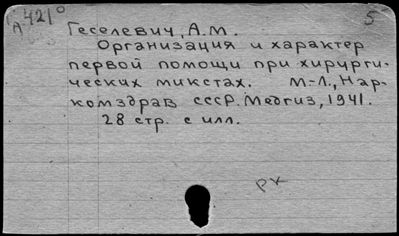 А421° 5
Геселевич, А.М.
Организация и характер
первой помощи при хирурги-
ческих микстах. М-Л., Нар-
комздрав СССР. Медгиз, 1941.
28 стр. с илл.